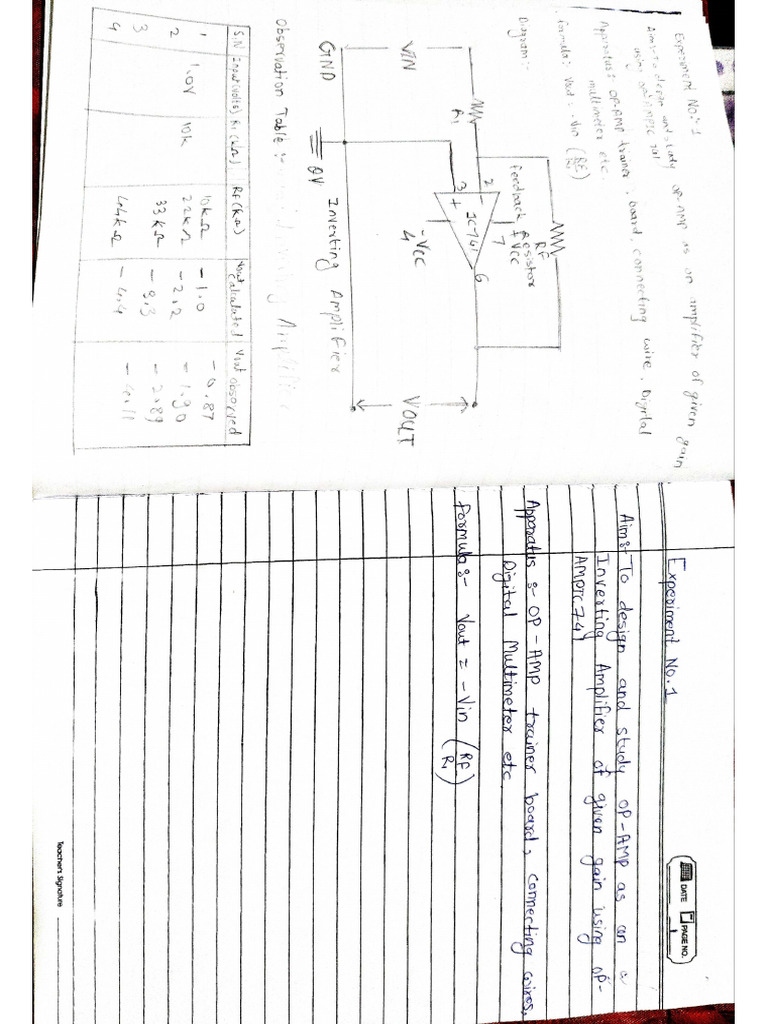 Experiment No:- 1
Aim:- To design and study OP-AMP as an amplifier of given gain
using OP-AMP IC 741
Apparatus:- OP-AMP trainer board, connecting wire, Digital
multimeter etc.
Formula:- Vout = -Vin (RF/R1)
Diagram:-
RF
Feedback Resistor
R1
VIN
2
-
7
+Vcc
IC-741
6
3
+
-Vcc
4
VOUT
GND
0V
Inverting Amplifier
Observation Table:-
S.N Input(Volts) R1(kΩ) RF(kΩ) Vout calculated Vout observed
1 10kΩ -1.0 -0.87
2 1.0V 10k 22kΩ -2.2 -1.90
3 33kΩ -3.3 -2.89
4 44kΩ -4.4 -4.11
DATE
PAGE NO.
1
Experiment No. 1
Aim:- To design and study OP-AMP as an a
Inverting Amplifier of given gain using OP-
AMPIC741
Apparatus:- OP-AMP trainer board, connecting wires,
Digital Multimeter etc
Formula:- Vout = -Vin (RF/R1)
Teacher's Signature